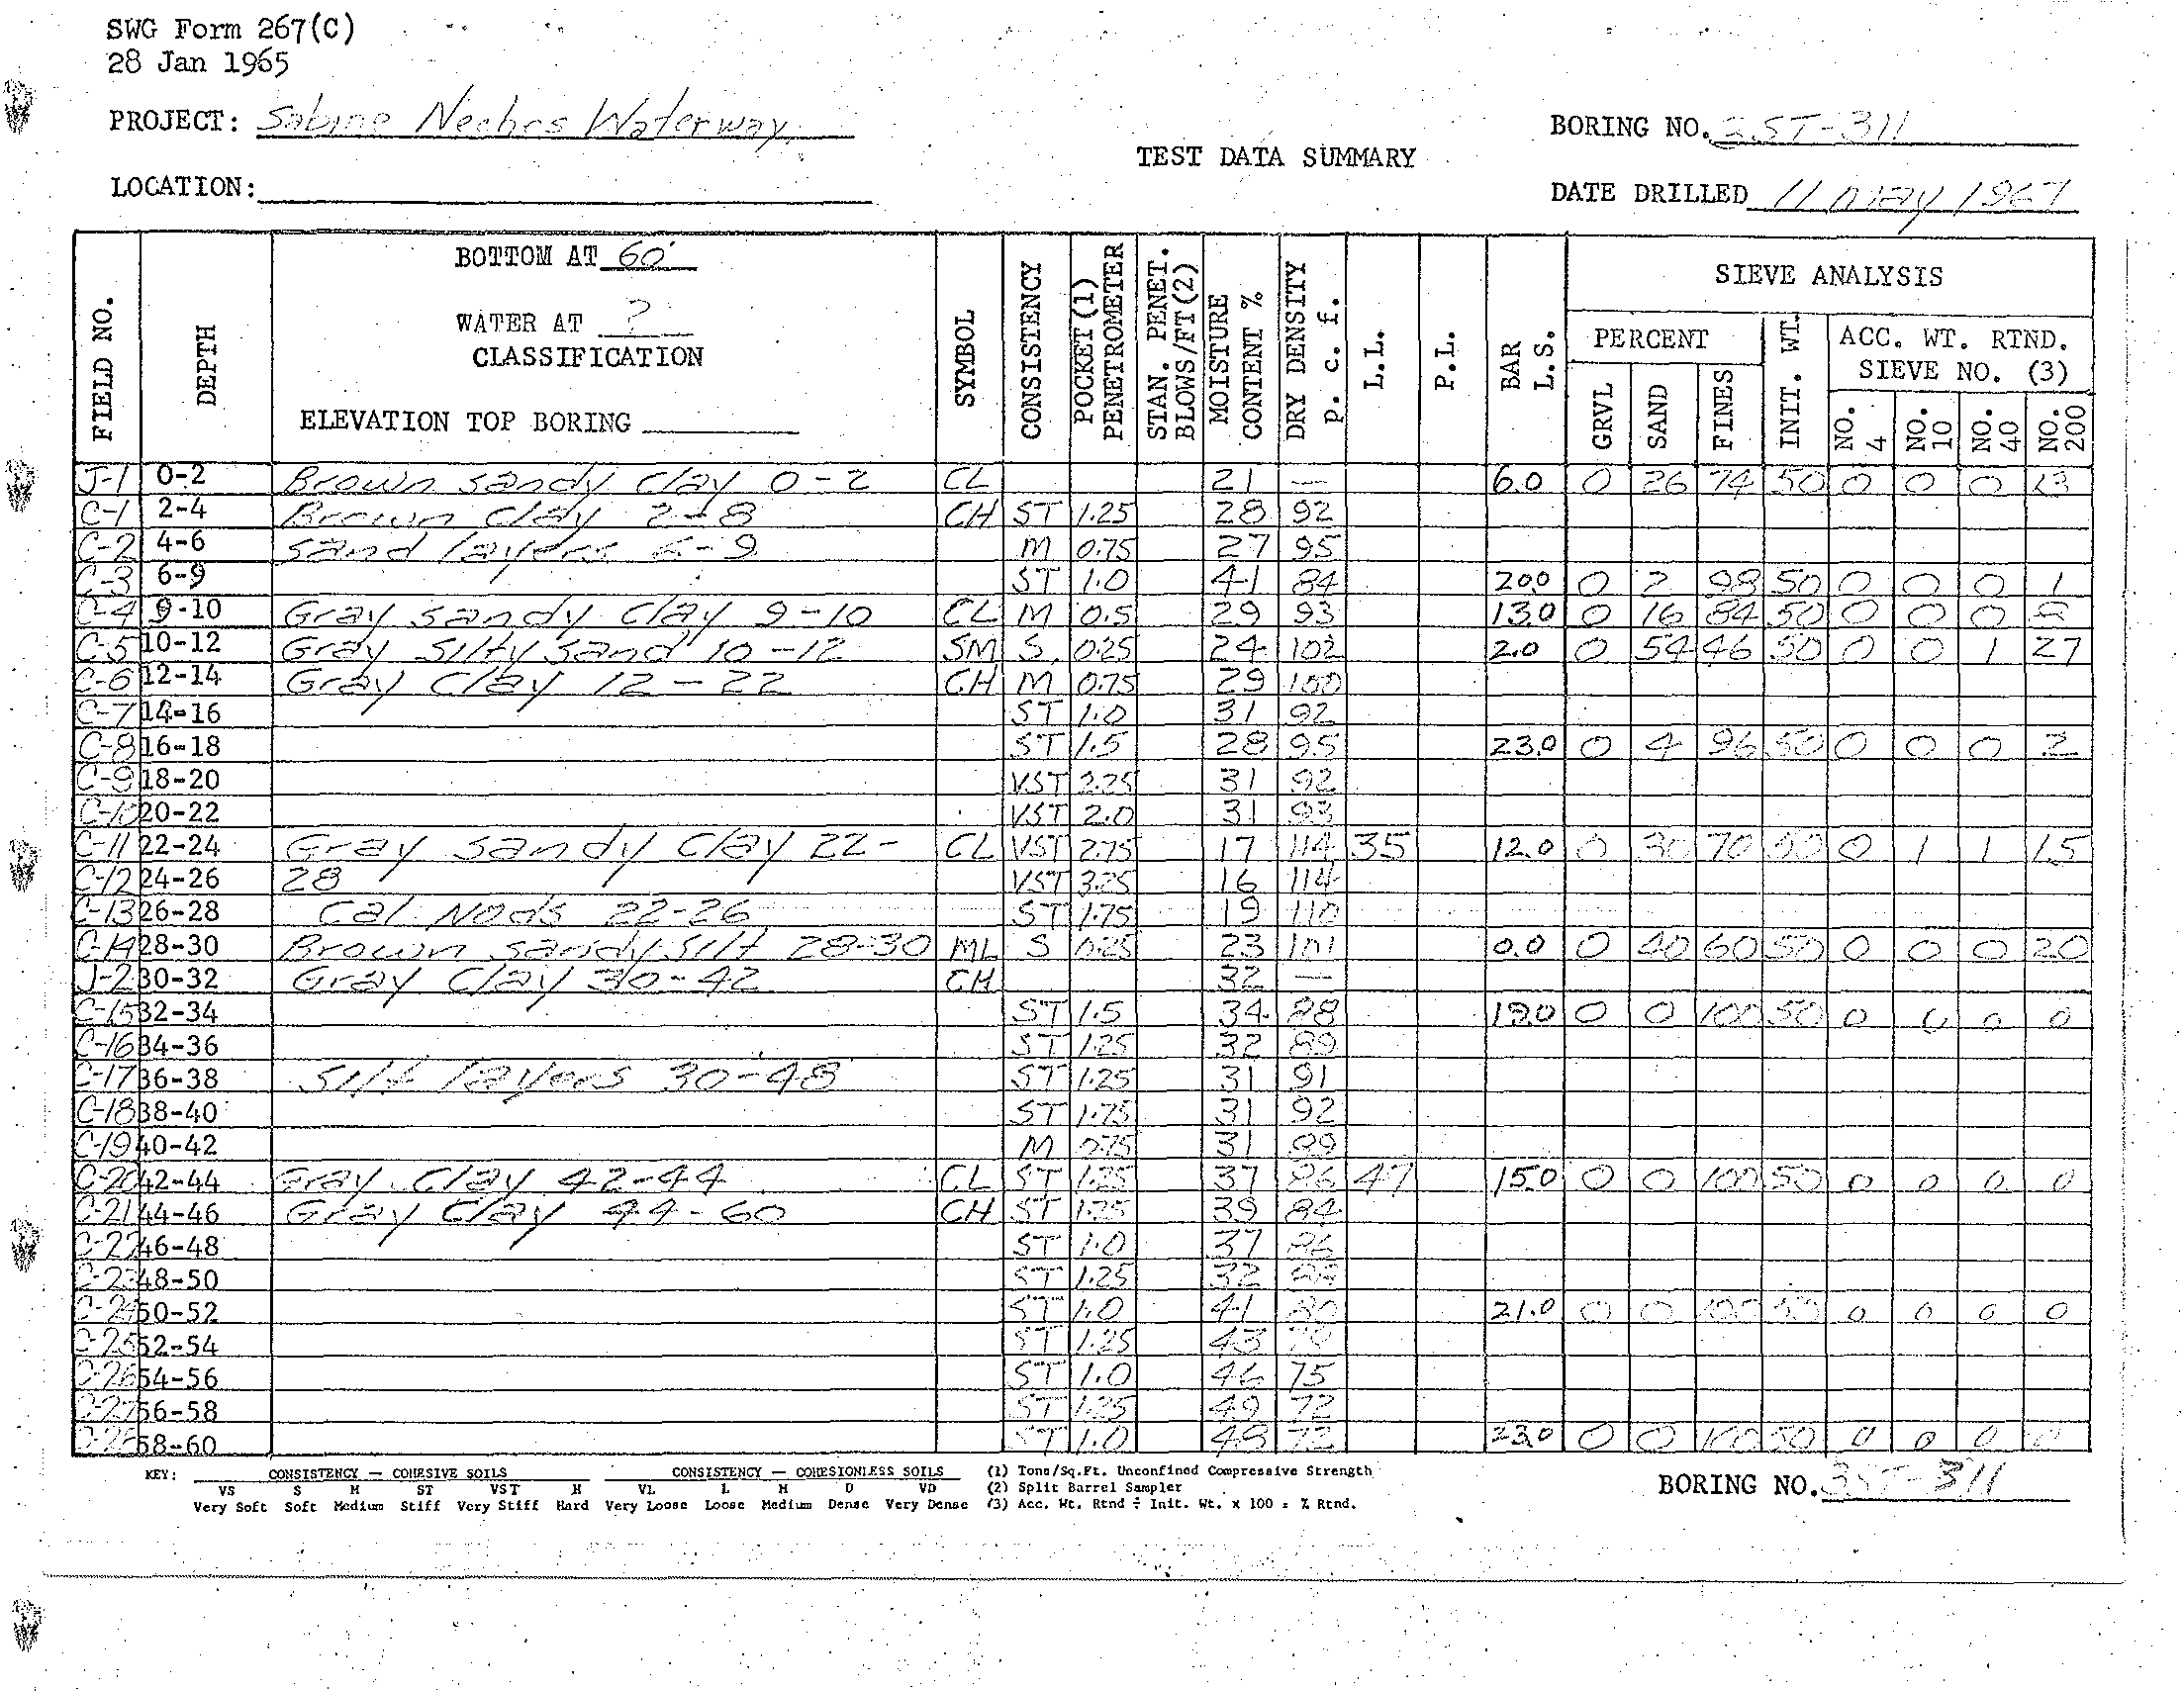 SWG Form 267(C)
28 Jan 1965
PROJECT: Sabine Neches Waterway
BORING NO. 3ST-311
TEST DATA SUMMARY
LOCATION:
DATE DRILLED 11 May 1967
FIELD NO. DEPTH BOTTOM AT 60' WATER AT ? CLASSIFICATION ELEVATION TOP BORING SYMBOL CONSISTENCY POCKET (1) PENETROMETER STAN. PENET. BLOWS/FT (2) MOISTURE CONTENT % DRY DENSITY p. c. f. L.L. P.L. BAR L.S. SIEVE ANALYSIS
PERCENT GRVL SAND FINES INIT. WT. ACC. WT. RTND. SIEVE NO. (3) NO. 4 NO. 10 NO. 40 NO. 200
J-1 0-2 Brown sandy clay 0-2 CL 21 — 6.0 0 26 74 50 0 0 0 13
C-1 2-4 Brown clay 2-8 CH ST 1.25 28 92
C-2 4-6 sand layers 6-9 M 0.75 27 95
C-3 6-9 ST 1.0 41 84 20.0 0 2 98 50 0 0 0 1
C-4 9-10 Gray sandy clay 9-10 CL M 0.5 29 93 13.0 0 16 84 50 0 0 0
C-5 10-12 Gray silty sand 10-12 SM S 0.25 24 102 2.0 0 54 46 50 0 0 1 27
C-6 12-14 Gray clay 12-22 CH M 0.75 29 100
C-7 14-16 ST 1.0 31 92
C-8 16-18 ST 1.5 28 95 23.0 0 4 96 50 0 0 0 2
C-9 18-20 VST 2.25 31 92
C-10 20-22 VST 2.0 31 93
C-11 22-24 Gray sandy clay 22- CL VST 2.75 17 114 35 12.0 0 30 70 50 0 1 1 15
C-12 24-26 28 VST 3.25 16 114
C-13 26-28 Cal Nods 22-26 ST 1.75 19 110
C-14 28-30 Brown sandy silt 28-30 ML S 0.25 23 101 0.0 0 40 60 50 0 0 0 20
J-2 30-32 Gray clay 30-42 CH 32 —
C-15 32-34 ST 1.5 34 88 19.0 0 0 100 50 0 0 0 0
C-16 34-36 ST 1.25 32 89
C-17 36-38 silt layers 30-48 ST 1.25 31 91
C-18 38-40 ST 1.75 31 92
C-19 40-42 M 0.75 31 89
C-20 42-44 Gray clay 42-44 CL ST 1.25 37 86 47 15.0 0 0 100 50 0 0 0 0
C-21 44-46 Gray clay 44-60 CH ST 1.25 39 84
C-22 46-48 ST 1.0 37 86
C-23 48-50 ST 1.25 32
C-24 50-52 ST 1.0 41 80 21.0 0 0 100 50 0 0 0 0
C-25 52-54 ST 1.25 43
C-26 54-56 ST 1.0 46 75
C-27 56-58 ST 1.25 49 72
C-28 58-60 ST 1.0 48 72 23.0 0 0 100 50 0 0 0 0
KEY: CONSISTENCY — COHESIVE SOILS CONSISTENCY — COHESIONLESS SOILS (1) Tons/Sq.Ft. Unconfined Compressive Strength
VS S M ST VST H VL L M D VD (2) Split Barrel Sampler
Very Soft Soft Medium Stiff Very Stiff Hard Very Loose Loose Medium Dense Very Dense (3) Acc. Wt. Rtnd ÷ Init. Wt. x 100 = % Rtnd.
BORING NO. 3ST-311